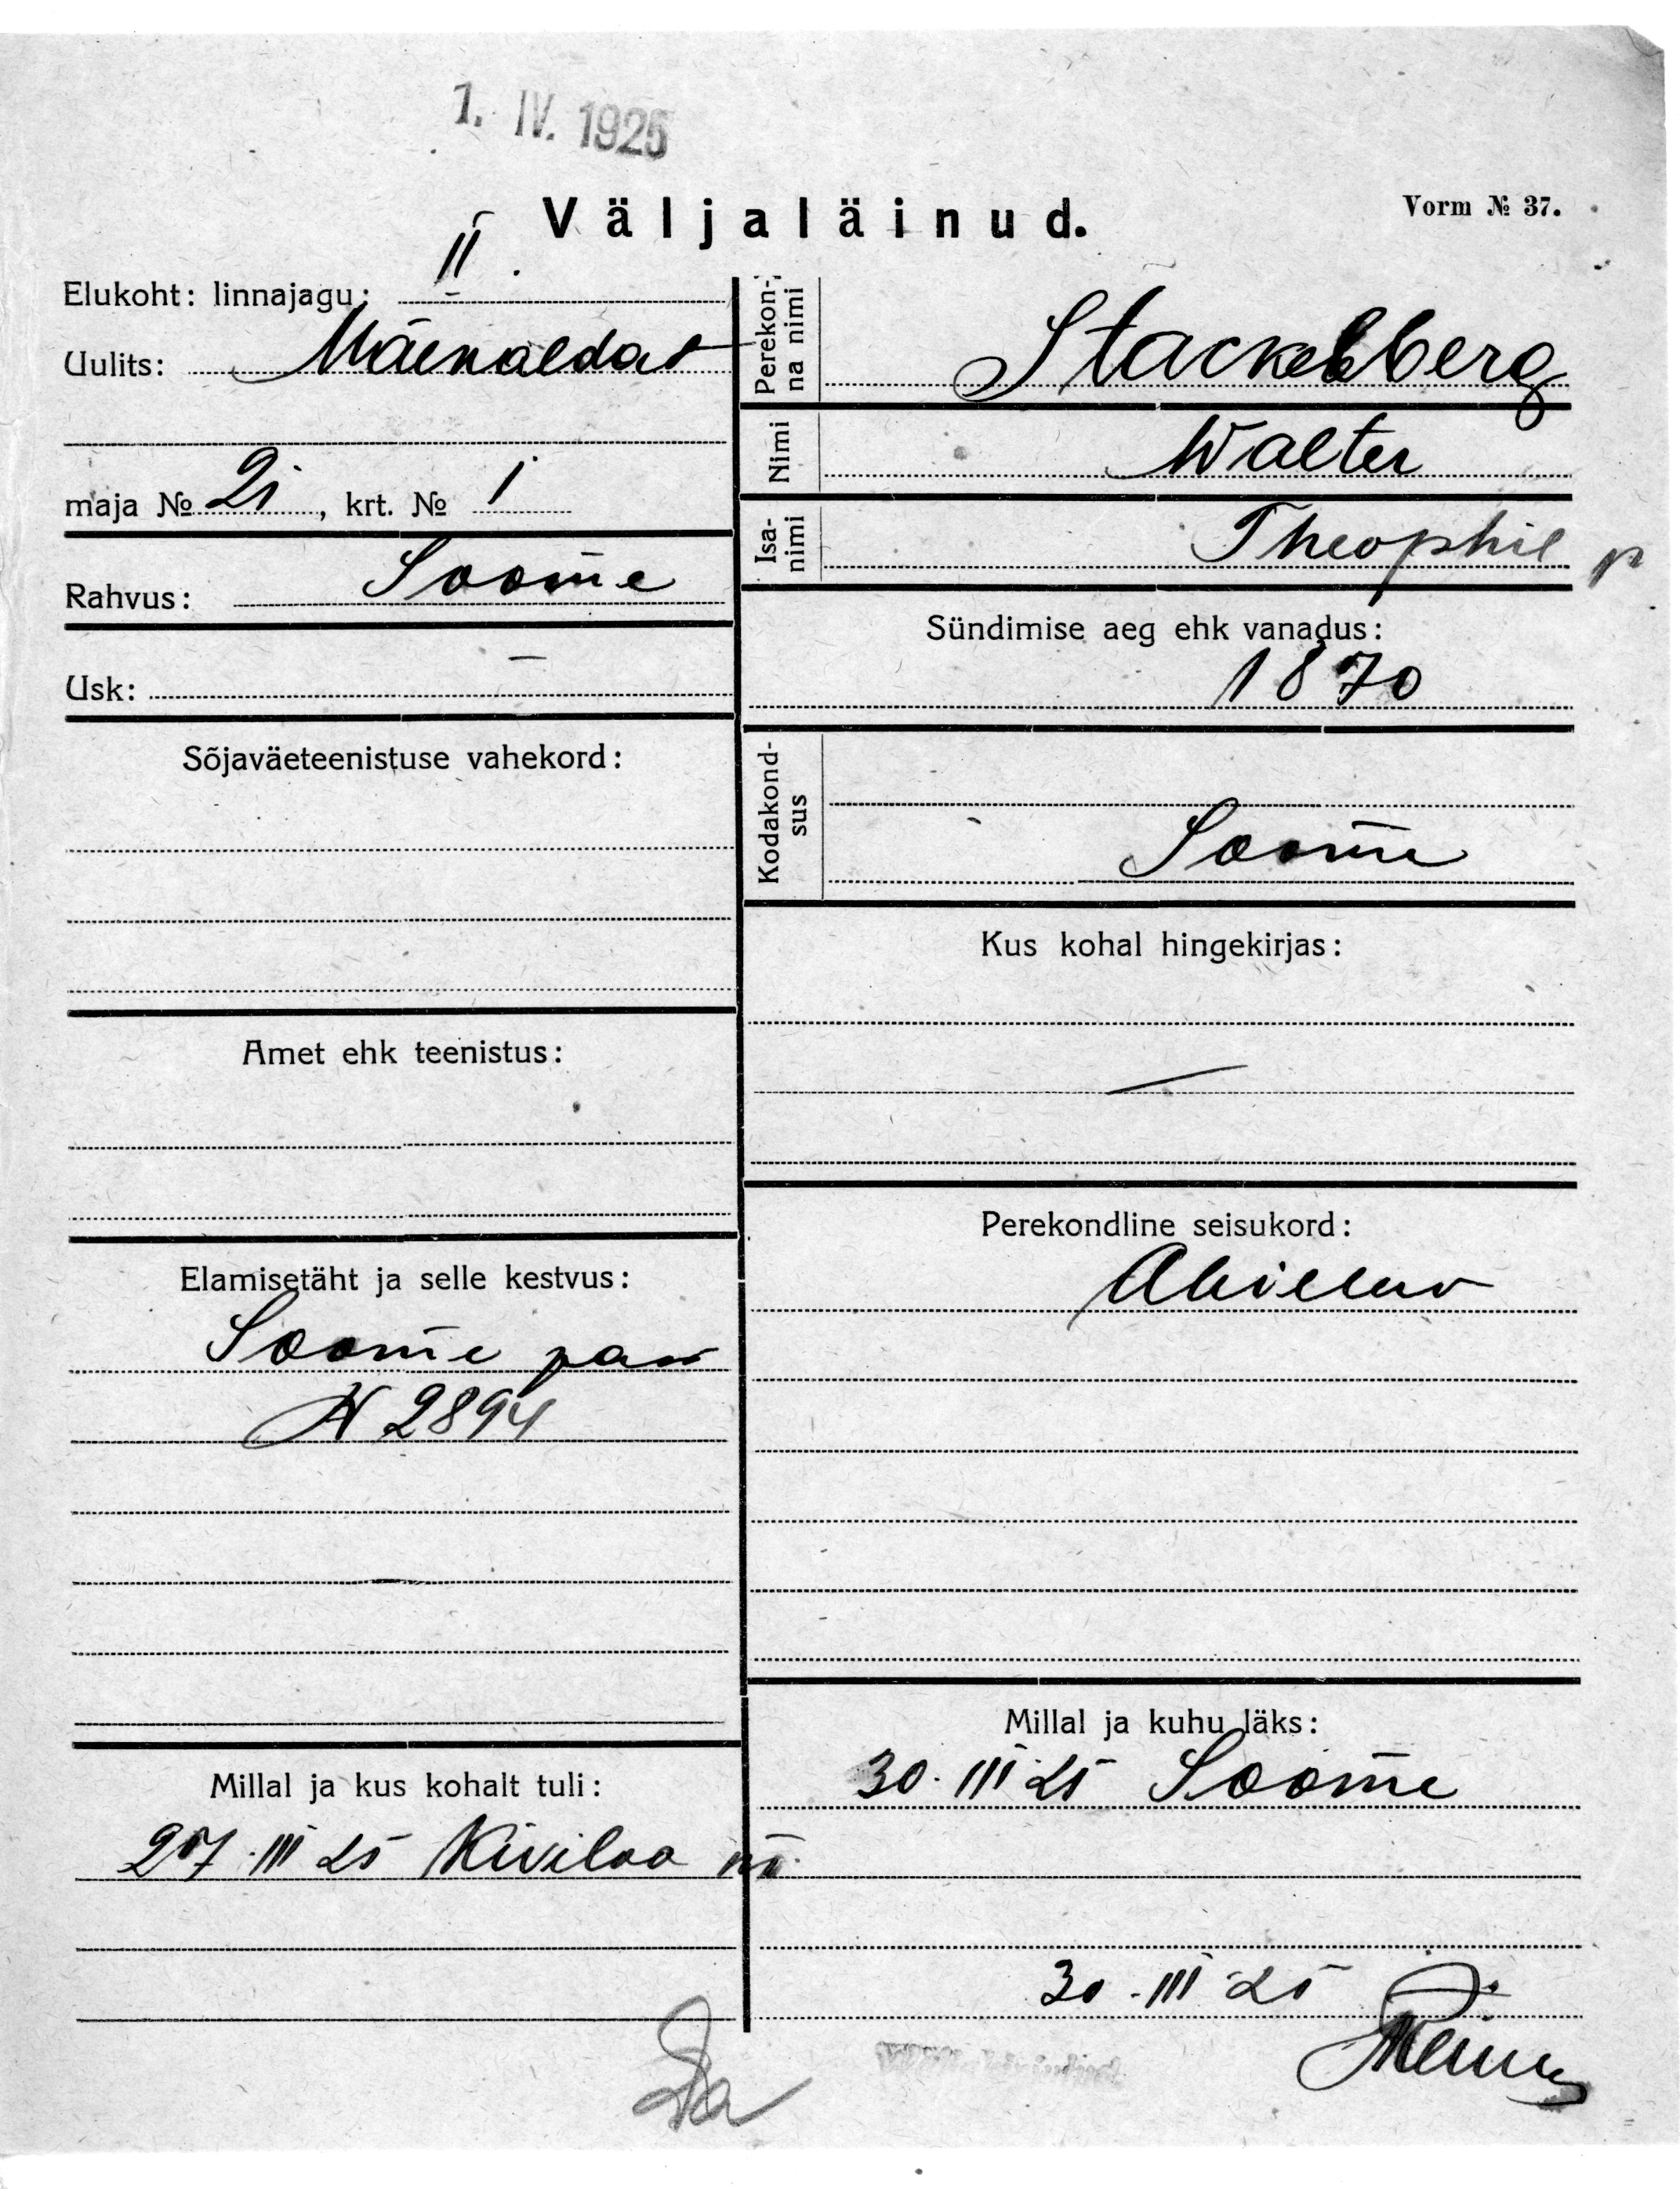 1. IV. 1925
Väljaläinud.
Vorm № 37.
Elukoht: linnajagu: II
Uulits: Mäekaldat
maja № 21, krt. № 1
Rahvus: Soome
Usk: —
Sõjaväeteenistuse vahekord:
Amet ehk teenistus:
Elamisetäht ja selle kestvus:
Soome pass
N 2894
Millal ja kus kohalt tuli:
27. III 25 Kiviloo
Perekon-
na nimi
Stackelberg
Nimi
Walter
Isa-
nimi
Theophil p
Sündimise aeg ehk vanadus:
1870
Kodakond-
sus
Soome
Kus kohal hingekirjas:
—
Perekondline seisukord:
Abielus
Millal ja kuhu läks:
30. III 25 Soome
30. III 25